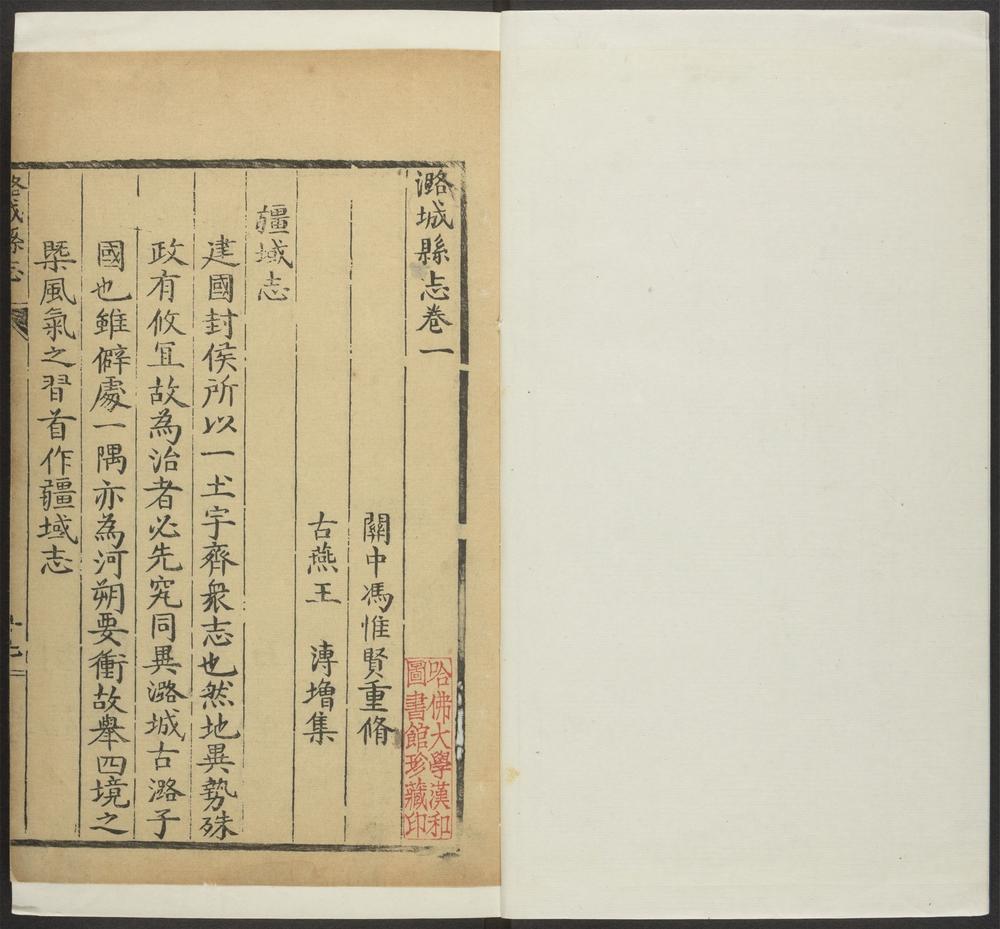 潞城縣志卷一
關中馮惟賢重脩
古燕王　溥增集
疆域志
建國封侯所以一土宇齊衆志也然地異勢殊
政有攸宜故為治者必先究同異潞城古潞子
國也雖僻處一隅亦為河朔要衝故舉四境之
槩風氣之習首作疆域志
潞城縣志
哈佛大學漢和
圖書館珍藏印